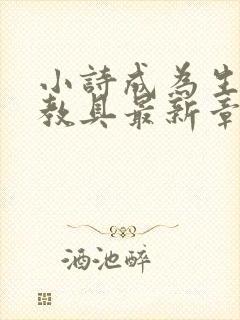 小詩成為生
教具最新章
酒池醉